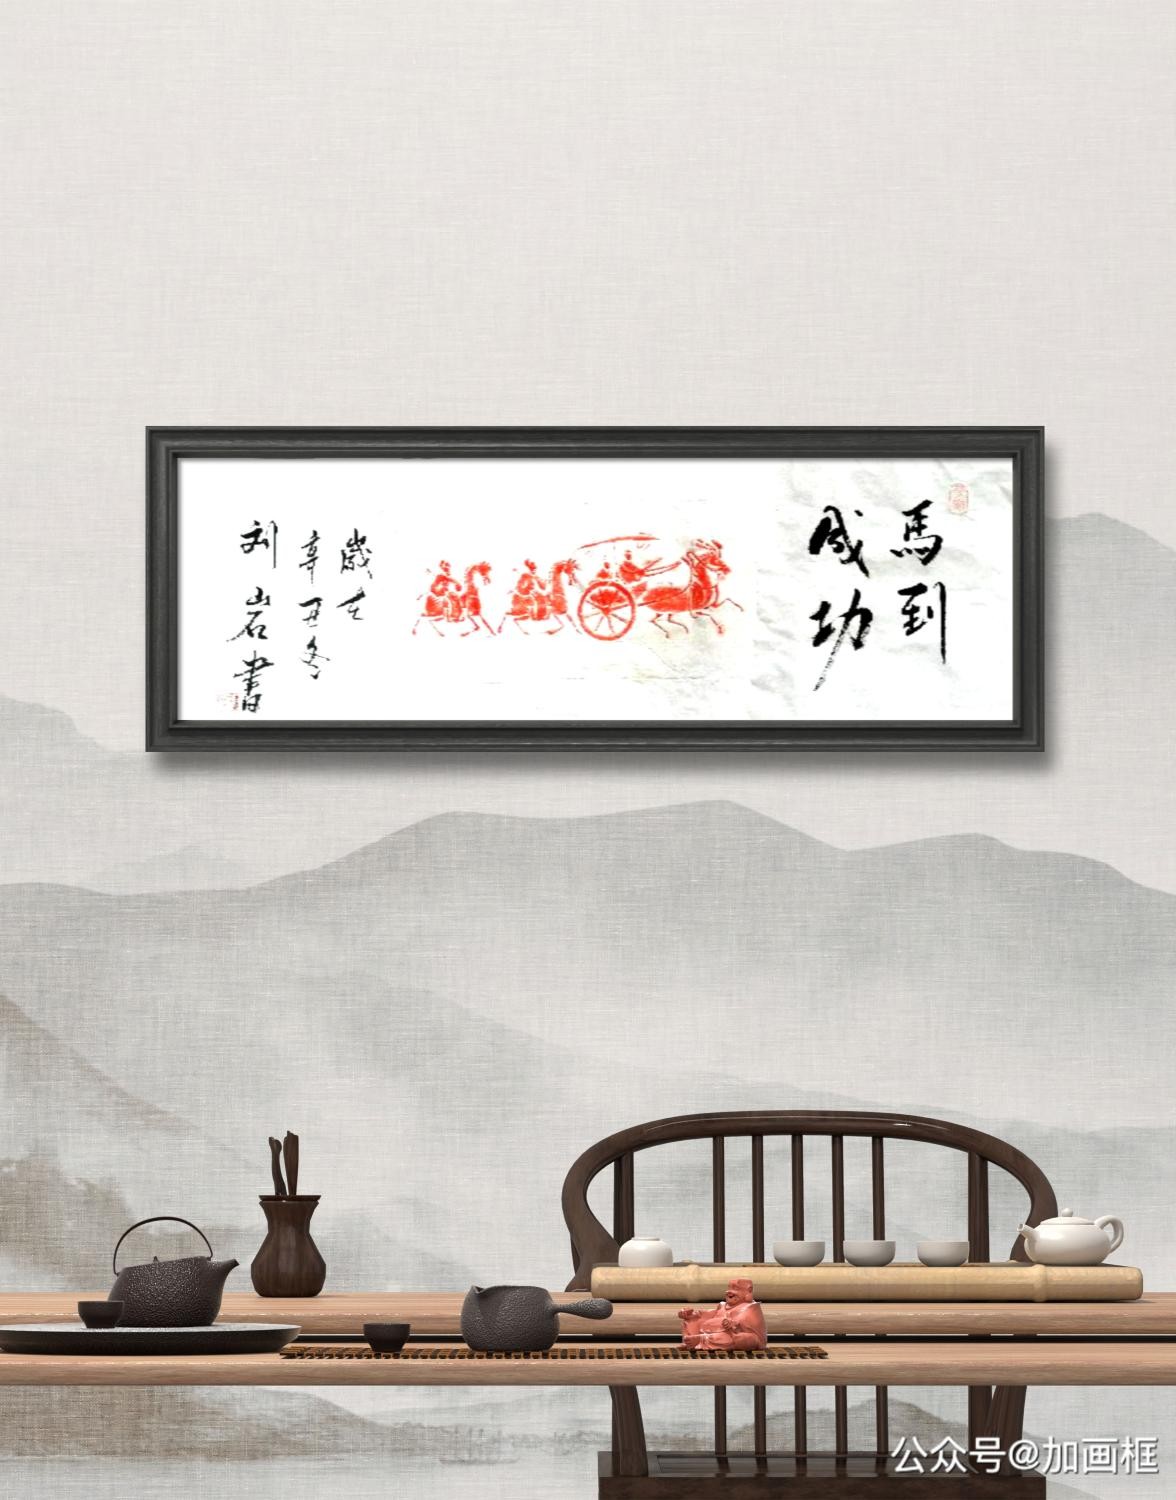 馬到
成功
歲在
辛丑冬
刘岩書
公众号@加画框